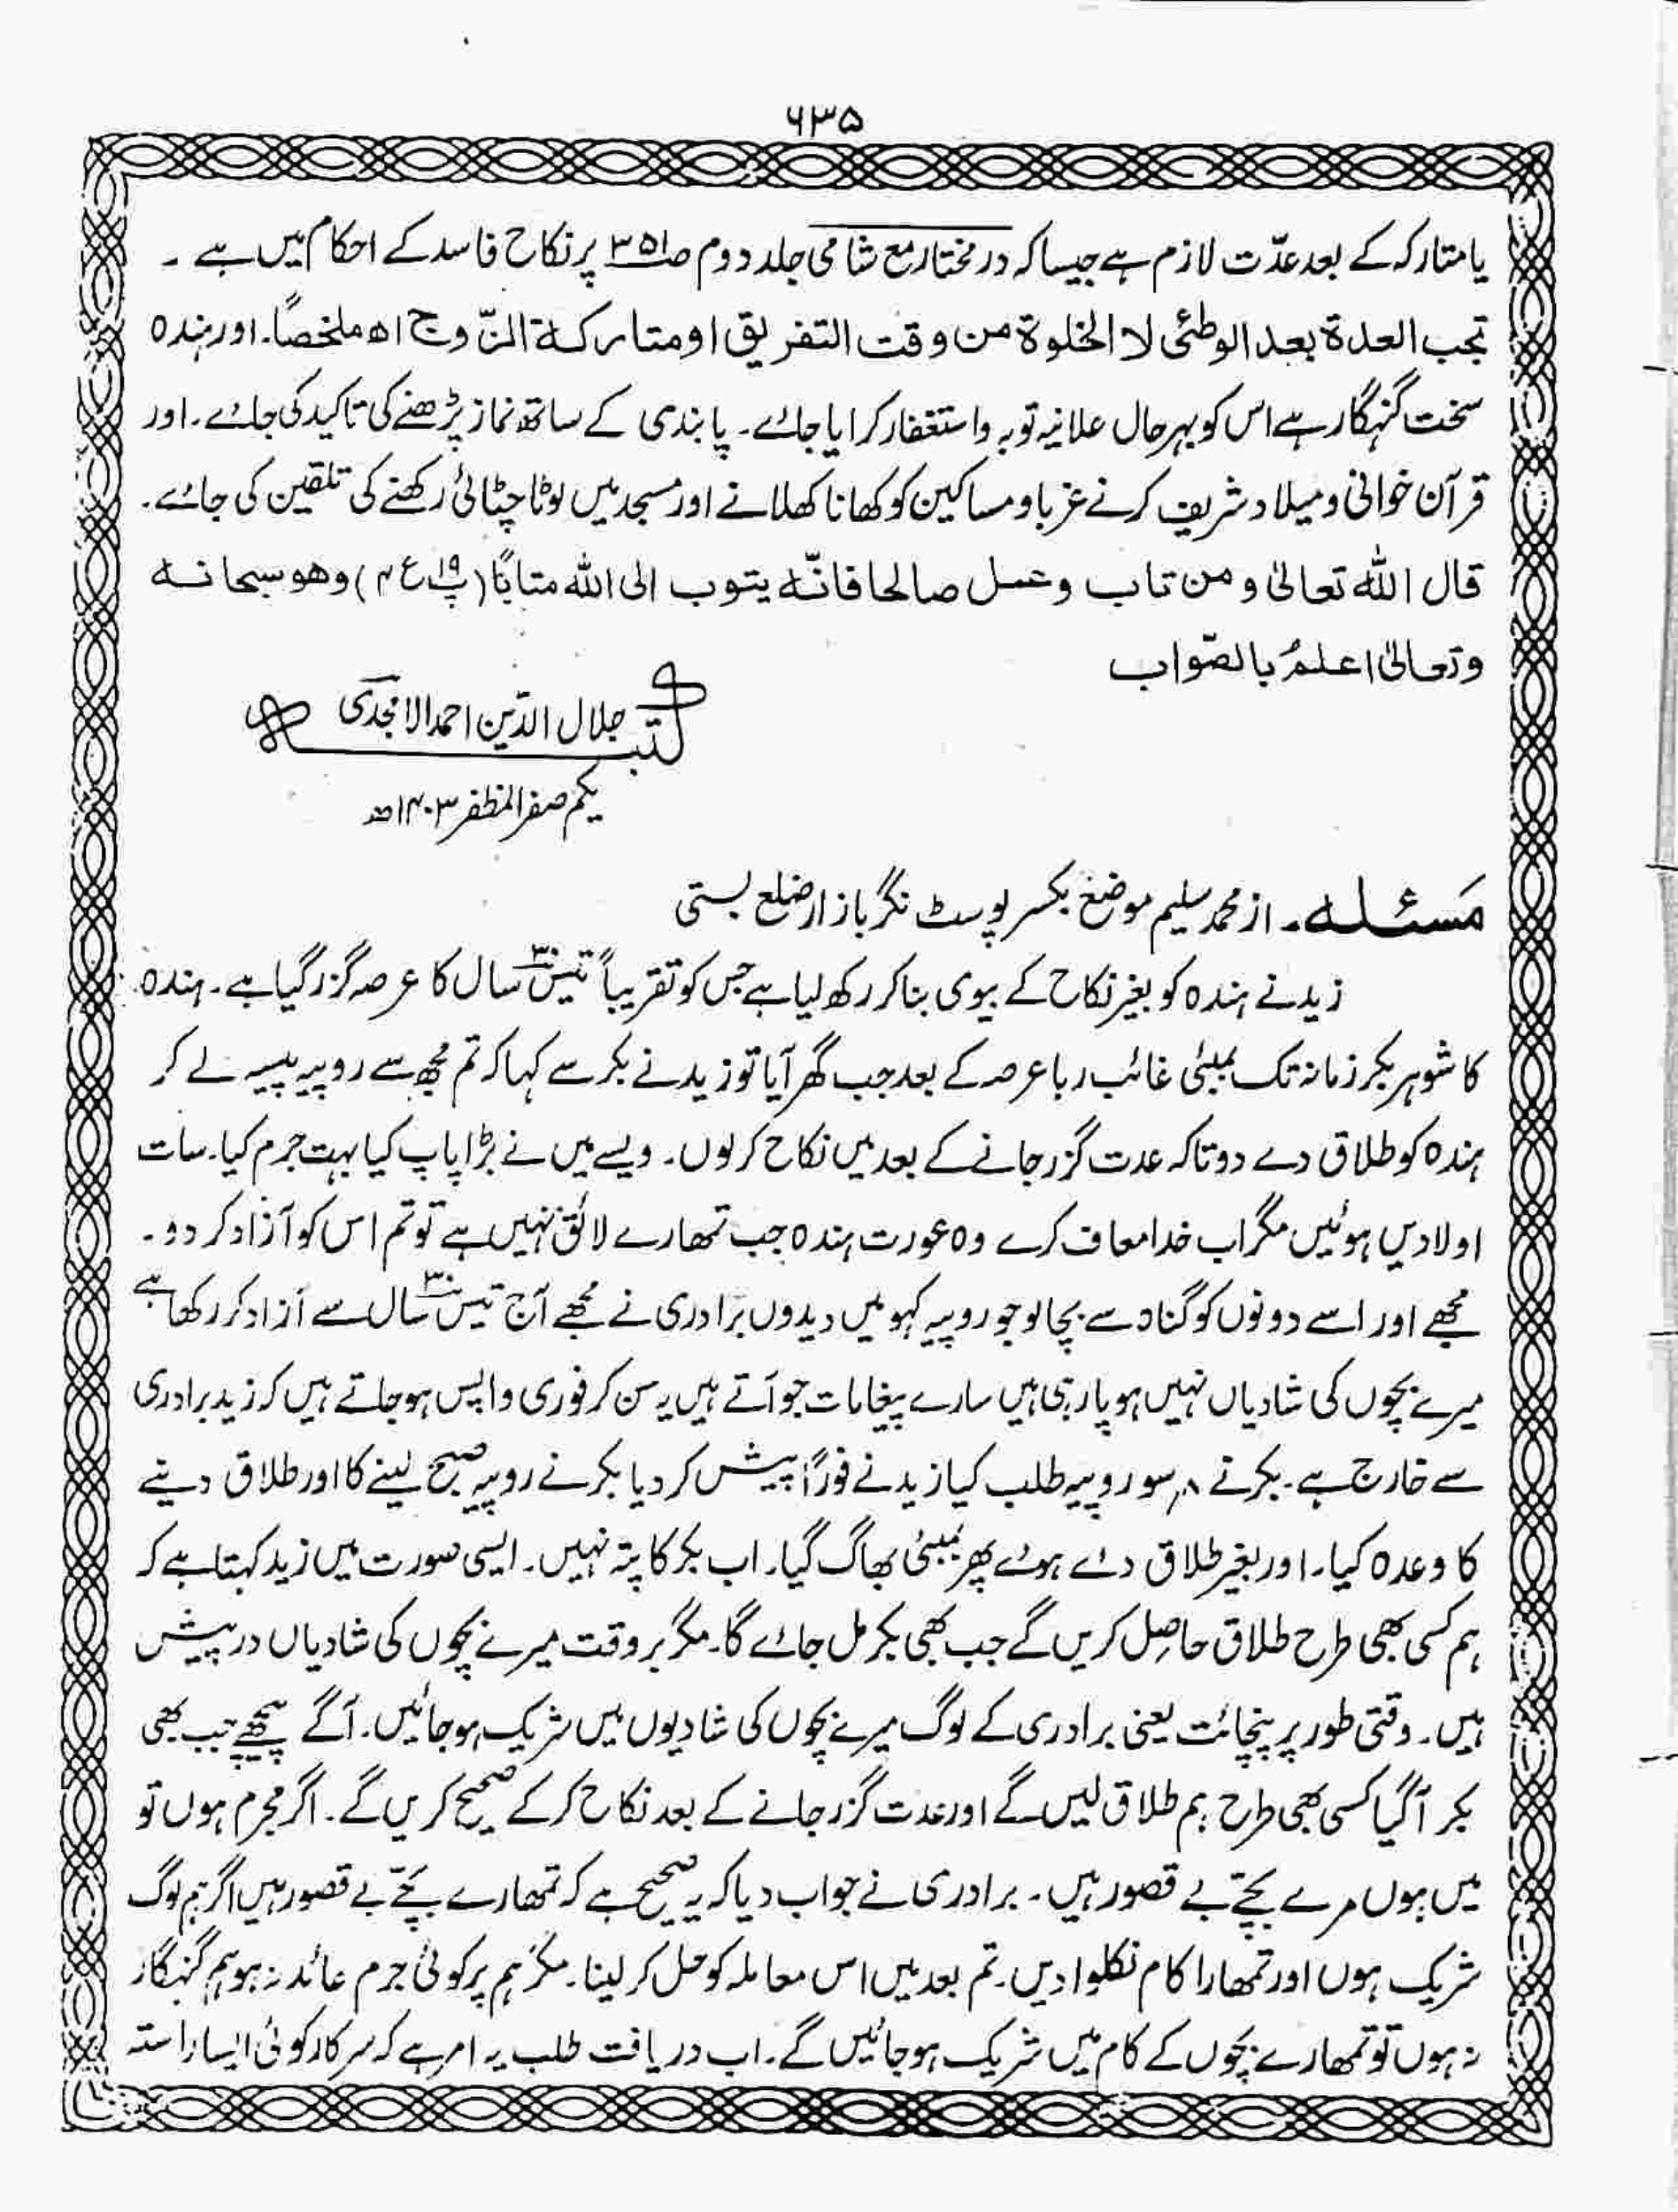 ۶۳۵
یا متارکہ کے بعد عدّت لازم ہے جیسا کہ درمختار مع شامی جلد دوم ص۳۵۱ پر نکاح فاسد کے احکام میں ہے ۔
تجب العدة بعد الوطئی لا الخلوة من وقت التفریق او متارکة الزّوج اھ ملخصاً۔ اور ہندہ
سخت گنہگار ہے اس کو بہرحال علانیہ توبہ واستغفار کرایا جائے ۔ پابندی کے ساتھ نماز پڑھنے کی تاکید کی جائے ۔ اور
قرآن خوانی و میلاد شریف کرنے غربا و مساکین کو کھانا کھلانے اور مسجد میں لوٹا چٹائی رکھنے کی تلقین کی جائے ۔
قال اللّٰہ تعالیٰ و من تاب وعمل صالحا فانّہ یتوب الی اللّٰہ متابًا (پ۱۹ ع۴) وھو سبحانہ
وتعالیٰ اعلمُ بالصّواب
کتبہ جلال الدّین احمد الامجدی
یکم صفر المظفر ۱۴۰۳ھ
مَسئلہ ۔ از محمد سلیم موضع بکسر پوسٹ نگر بازار ضلع بستی
زید نے ہندہ کو بغیر نکاح کے بیوی بنا کر رکھ لیا ہے جس کو تقریباً تیس۳۰ سال کا عرصہ گزر گیا ہے ۔ ہندہ
کا شوہر بکر زمانہ تک بمبئی غائب رہا عرصہ کے بعد جب گھر آیا تو زید نے بکر سے کہا کہ تم مجھ سے روپیہ پیسہ لے کر
ہندہ کو طلاق دے دو تاکہ عدت گزر جانے کے بعد میں نکاح کر لوں ۔ ویسے میں نے بڑا پاپ کیا بہت جرم کیا ۔ سات
اولادیں ہوئیں مگر اب خدا معاف کرے وہ عورت ہندہ جب تمھارے لائق نہیں ہے تو تم اس کو آزاد کر دو ۔
مجھے اور اسے دونوں کو گناہ سے بچالو جو روپیہ کہو میں دیدوں برادری نے مجھے آج تیس۳۰ سال سے آزاد کر رکھا ہے
میرے بچوں کی شادیاں نہیں ہو پا رہی ہیں سارے پیغامات جو آتے ہیں یہ سن کر فوری واپس ہو جاتے ہیں کہ زید برادری
سے خارج ہے ۔ بکر نے ۸ سو روپیہ طلب کیا زید نے فوراً پیش کر دیا بکر نے روپیہ صبح لینے کا اور طلاق دینے
کا وعدہ کیا ۔ اور بغیر طلاق دئے ہوئے پھر بمبئی بھاگ گیا ۔ اب بکر کا پتہ نہیں ۔ ایسی صورت میں زید کہتا ہے کہ
ہم کسی بھی طرح طلاق حاصل کریں گے جب بھی بکر مل جائے گا ۔ مگر بروقت میرے بچوں کی شادیاں درپیش
ہیں ۔ وقتی طور پر پنچائت یعنی برادری کے لوگ میرے بچوں کی شادیوں میں شریک ہو جائیں ۔ آگے پیچھے جب بھی
بکر آگیا کسی بھی طرح ہم طلاق لیں گے اور عدت گزر جانے کے بعد نکاح کر کے صحیح کریں گے ۔ اگر مجرم ہوں تو
میں ہوں مرے بچّے بے قصور ہیں ۔ برادری نے جواب دیا کہ یہ صحیح ہے کہ تمھارے بچّے بے قصور ہیں اگر ہم لوگ
شریک ہوں اور تمھارا کام نکلوا دیں ۔ تم بعد میں اس معاملہ کو حل کر لینا ۔ مگر ہم پر کوئی جرم عائد نہ ہو ہم گنہگار
نہ ہوں تو تمھارے بچوں کے کام میں شریک ہو جائیں گے ۔ اب دریافت طلب یہ امر ہے کہ سرکار کوئی ایسا راستہ